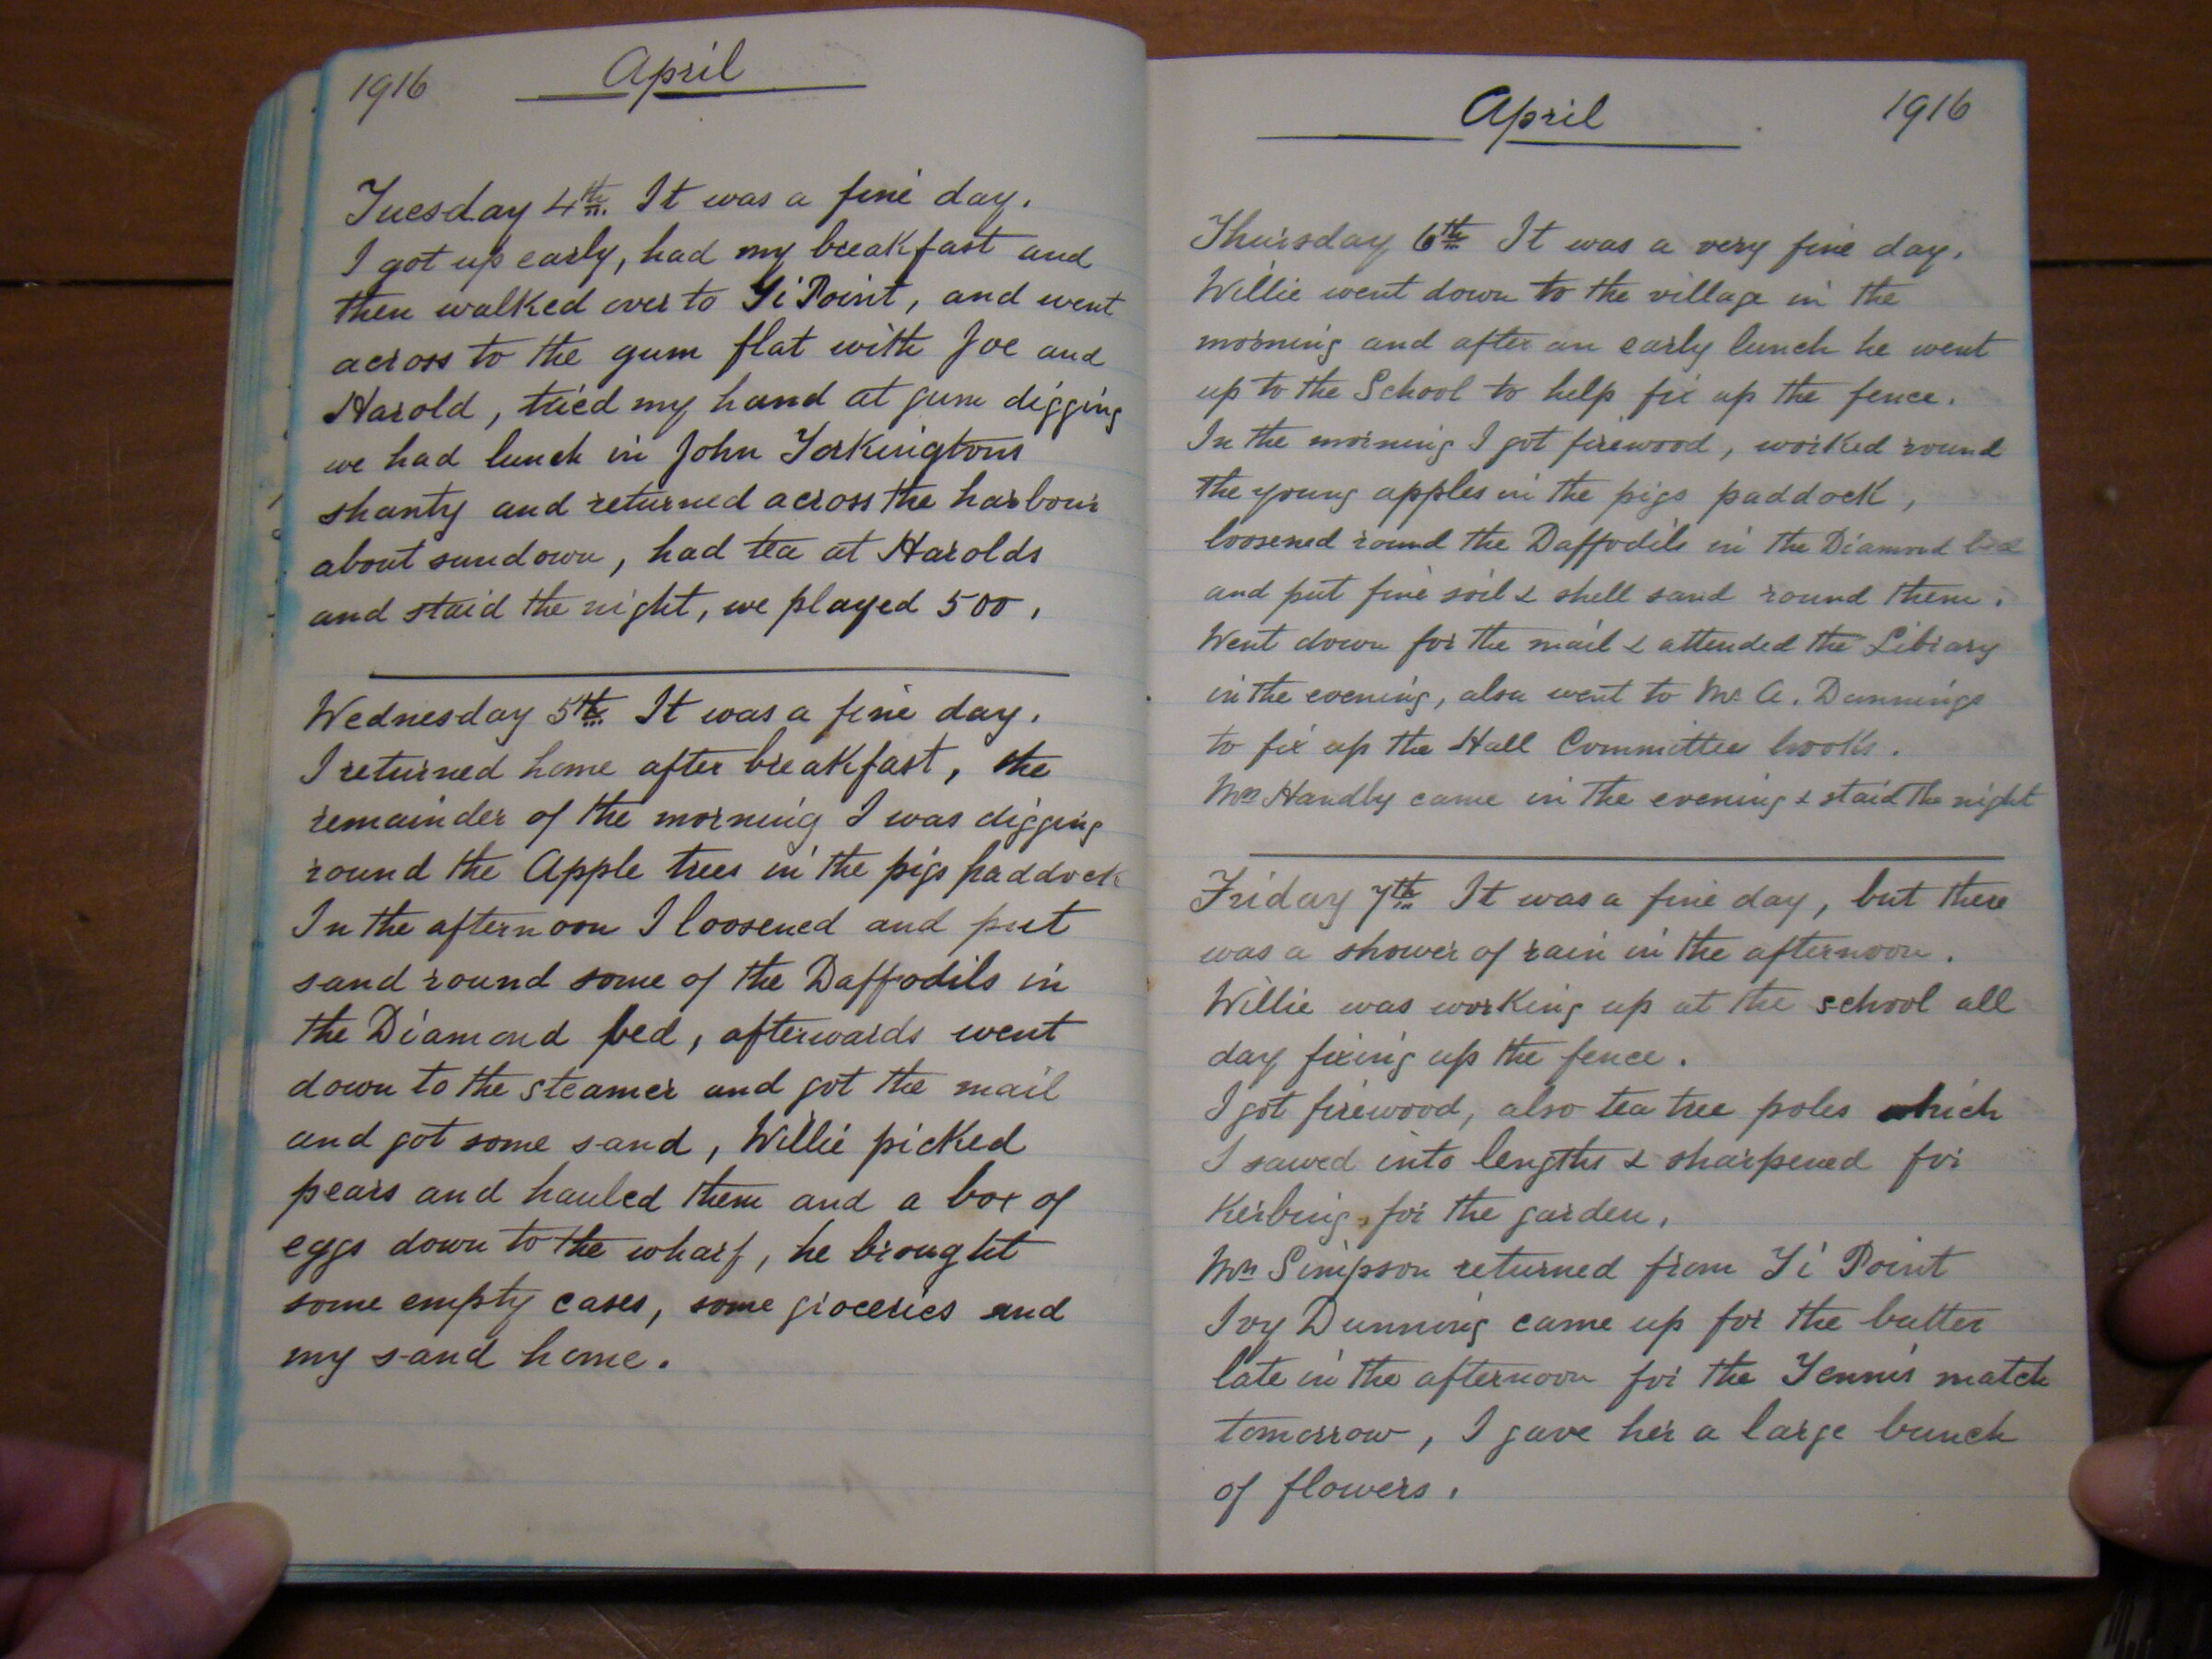 1916 April
Tuesday 4th. It was a fine day.
I got up early, had my breakfast and
then walked over to Ti Point, and went
across to the gum flat with Joe and
Harold, tried my hand at gum digging
we had lunch in John Torkingtons
shanty and returned across the harbour
about sundown, had tea at Harolds
and staid the night, we played 500.
Wednesday 5th. It was a fine day.
I returned home after breakfast, the
remainder of the morning I was digging
round the Apple trees in the pigs paddock
In the afternoon I loosened and put
sand round some of the Daffodils in
the Diamond bed, afterwards went
down to the steamer and got the mail
and got some sand, Willie picked
pears and hauled them and a box of
eggs down to the wharf, he brought
some empty cases, some groceries and
my sand home.
April 1916
Thursday 6th It was a very fine day.
Willie went down to the village in the
morning and after an early lunch he went
up to the School to help fix up the fence.
In the morning I got firewood, worked round
the young apples in the pigs paddock,
loosened round the Daffodils in the Diamond bed
and put fine soil & shell sand round them.
Went down for the mail & attended the Library
in the evening, also went to Mr. A. Dunnings
to fix up the Hall Committee books.
Mrs Handby came in the evening & staid the night
Friday 7th It was a fine day, but there
was a shower of rain in the afternoon.
Willie was working up at the school all
day fixing up the fence.
I got firewood, also tea tree poles which
I sawed into lengths & sharpened for
Kerbing, for the garden,
Mrs Simpson returned from Ti Point
Ivy Dunning came up for the butter
late in the afternoon for the Tennis match
tomorrow, I gave her a large bunch
of flowers.